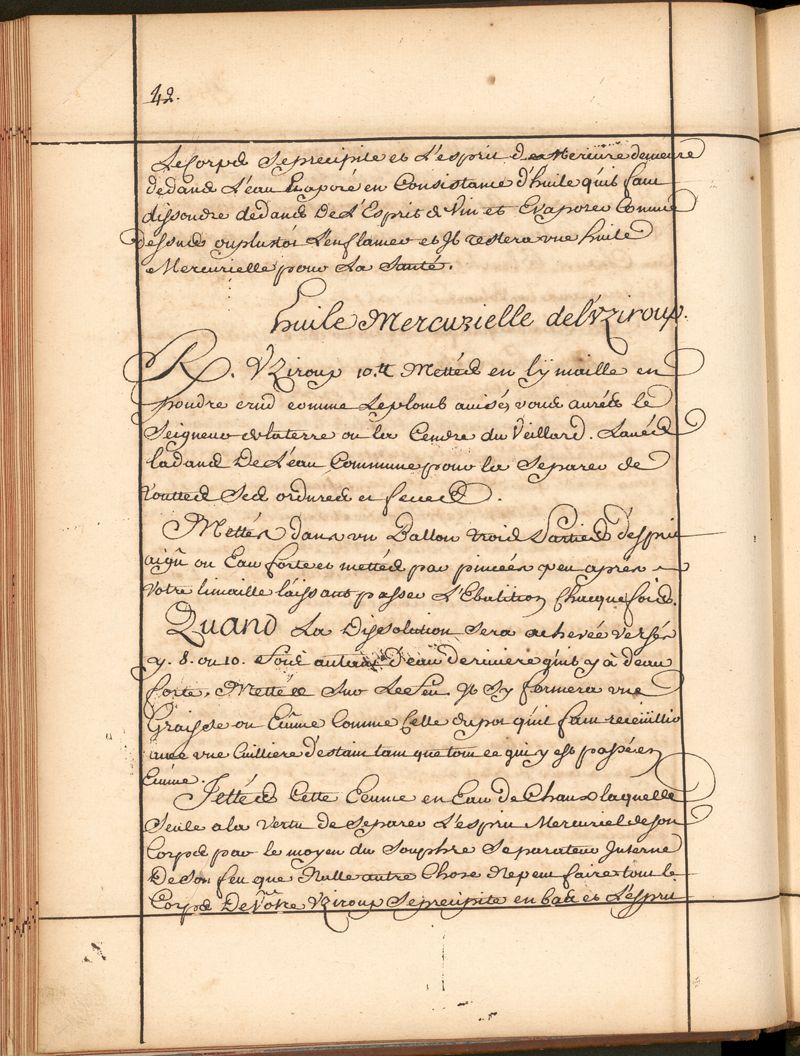 42.
Le Corps se precipite et L'esprit de Mercure demeure
dedans L'eau Evaporé en Consistance d'huile qu'il faut
dissoudre dedans De L'Esprit de Vin et Evaporer Comme
dessus ou plustot L'enflamer et Il restera une huile
Mercurielle pour La Santé.
huile Mercurielle de l'Uziroup.
R. Uziroup 10.tt Mettés en lymaille en
poudre crud comme Le plomb avisés, vous aurés le
Seigneur de la terre ou la Cendre du Veillard. Lavés
la dans De L'eau Commune pour la Separer de
touttes Ses ordures et feces.
Mettés dans un Ballon trois Parties d'esprit
aigu ou Eau forte et mettés par pincées peu apres
Votre limaille laissant passer L'Ebulition Chacque fois.
QUAND La Dissolution Sera achevée versés
y. 8. ou 10. fois autant D'eau de riviere qu'il y à d'eau
forte. Mettés Sur Le feu Il S'y formera une
Graisse ou Ecume Comme Celle du pot qu'il faut receuillir
avec une Cuilliere d'estain tant que tout ce qui y est passé en
Ecume.
Jettés Cette Ecume en Eau de Chaux laquelle
Seule a la vertu de Separer L'esprit Mercuriel de son
Corps par le moyen du Souphre Separateur Interne
De Son feu que Nulle autre Chose Ne peut faire tout le
Corps De Votre Uziroup Se precipite en bas et L'esprit